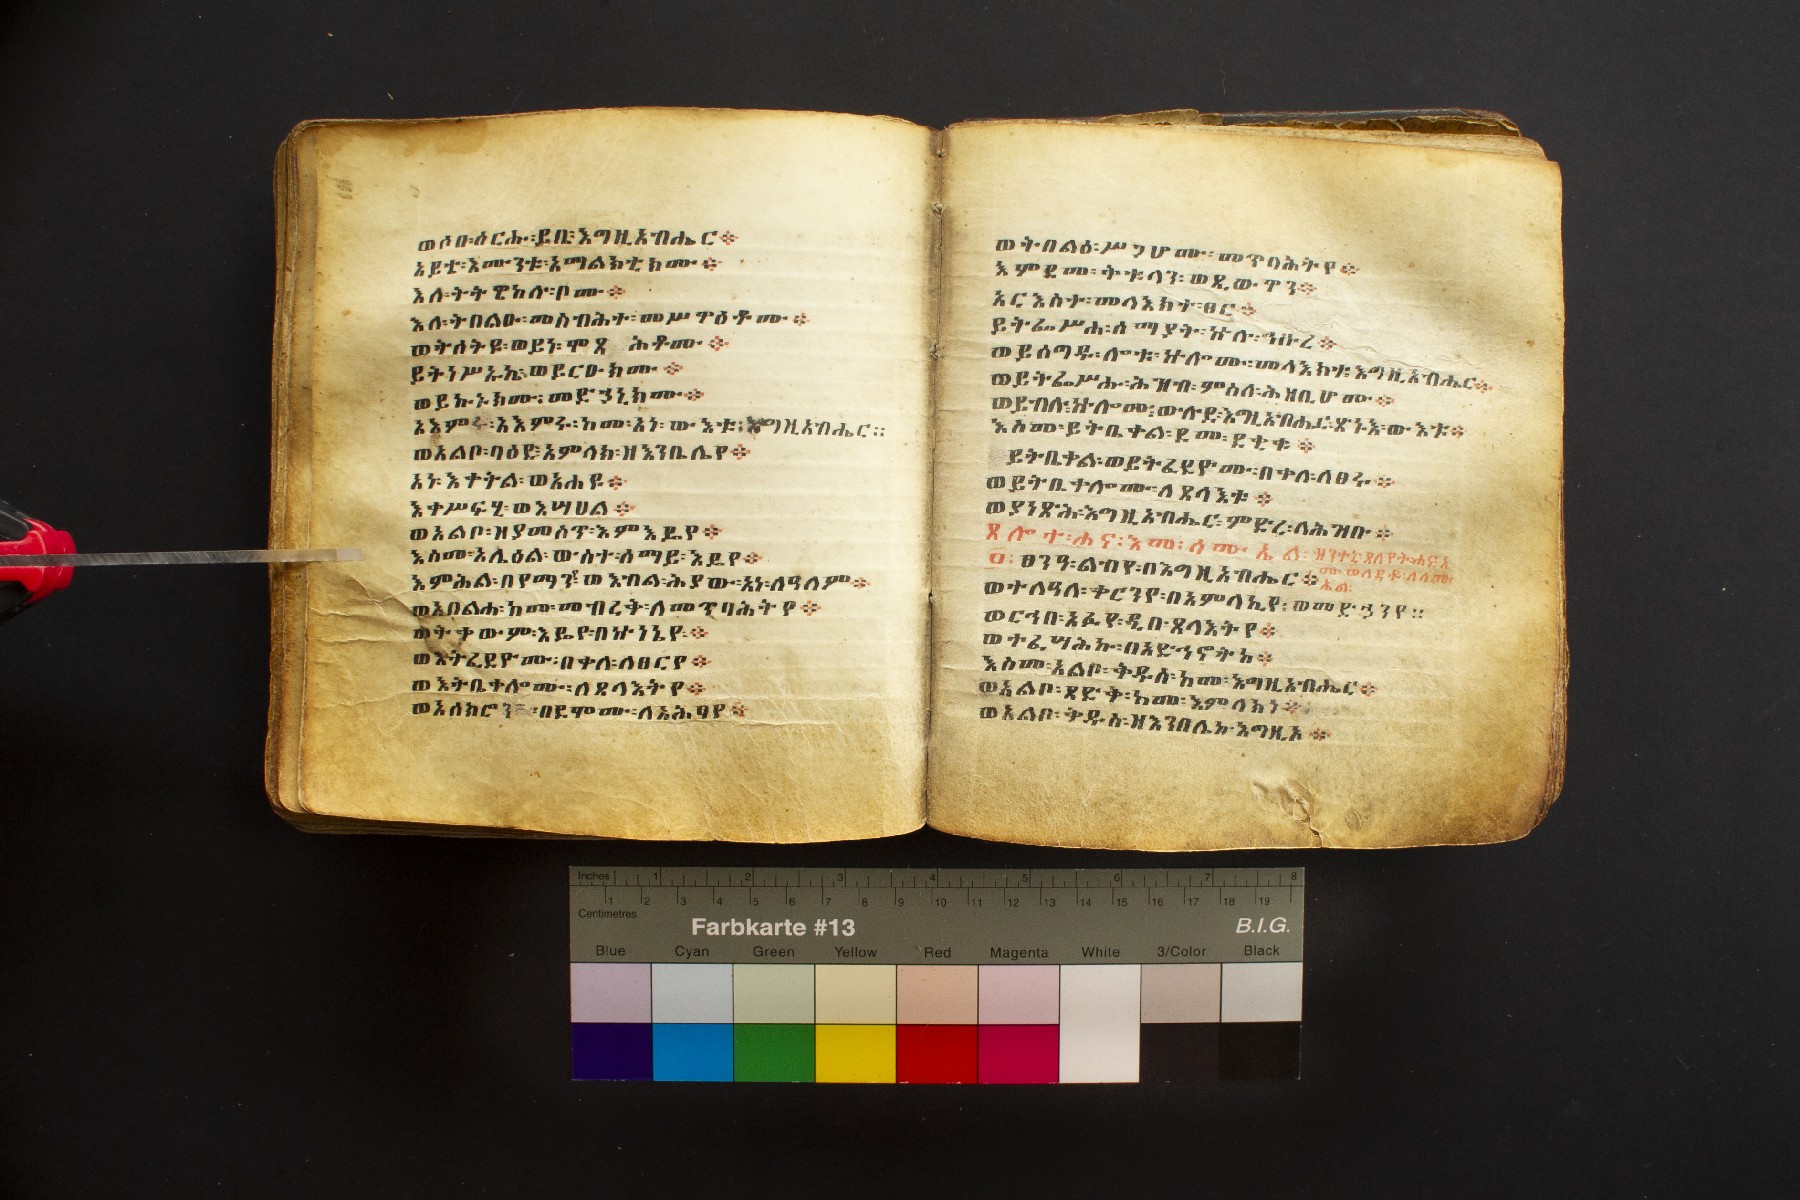 ወሶበ፡ ሰርሑ፡ ይቤ፡ እግዚአብሔር፨
አይቴ፡ እሙንቱ፡ አማልክቲክሙ፨
እለ፡ ትትዌከሉ፡ ቦሙ፨
እለ፡ ትበልዑ፡ መስብሕተ፡ መሥዋዕቶሙ፨
ወትሰትዩ፡ ወይነ፡ ሞጻሕቶሙ፨
ይትነሥኡኬ፡ ወይርድክሙ፨
ወይኩኑክሙ፡ መድኃኒክሙ፨
አእምሩ፡ አእምሩ፡ ከመ፡ አነ፡ ውእቱ፡ እግዚአብሔር።
ወአልቦ፡ ባዕድ፡ አምላክ፡ ዘእንቤሌየ፨
አነ፡ እቀትል፡ ወአሐዩ፨
እቀሥፍሂ፡ ወእሣሀል፨
ወአልቦ፡ ዘያመስጥ፡ እምእዴየ፨
እስመ፡ አሌዕል፡ ውስተ፡ ሰማይ፡ እዴየ፨
እምሕል፡ በየማንየ፡ ወእብል፡ ሕያው፡ አነ፡ ለዓለም፨
ወአበልሖ፡ ከመ፡ መብረቅ፡ ለመጥባሕትየ፨
ወትቀውም፡ እዴየ፡ በኵነኔየ፨
ወእትፈደዮሙ፡ በቀለ፡ ለፀርየ፨
ወእትቤቀሎሙ፡ ለጸላእትየ፨
ወአሰክሮን፡ በደሞሙ፡ ለአሕፃየ፨
ወትበልዕ፡ ሥጋሆሙ፡ መጥባሕትየ፨
እምደመ፡ ትቱላን፡ ወጼውዋን፨
አርእስተ፡ መላእክተ፡ ፀር፨
ይትፌሥሐ፡ ሰማያት፡ ኵሉ፡ ኅቡረ፨
ወይሰግዱ፡ ሎቱ፡ ኵሎሙ፡ መላእክቱ፡ እግዚአብሔር፨
ወይትፌሥሑ፡ ሕዝብ፡ ምስለ፡ ሕዘቢሆሙ፨
ወይብሉ፡ ኵሎሙ፡ ውሉደ፡ እግዚአብሔር፡ ጽኑእ፡ ውእቱ፨
እስመ፡ ይትቤቀል፡ ደመ፡ ደቂቁ፨
ይትቤቀል፡ ወይትፈደዮሙ፡ በቀለ፡ ለፀሩ፨
ወይትቤቀሎሙ፡ ለጸላእቱ፨
ወያነጽሕ፡ እግዚአብሔር፡ ምድረ፡ ለሕዝቡ፨
ጸሎተ፡ ሐና፡ እመ፡ ሳሙኤል፡
፬፡ ፀንዓ፡ ልብየ፡ በእግዚአብሔር፨
ወተለዓለ፡ ቀርንየ፡ በአምላኪየ፡ ወመድኃንየ።
ወርኅበ፡ አፉየ፡ ዲበ፡ ጸላእትየ፨
ወተፈሣሕኩ፡ በአድኅኖትከ፨
እስመ፡ አልቦ፡ ቅዱስ፡ ከመ፡ እግዚአብሔር፨
ወአልቦ፡ ጻድቅ፡ ከመ፡ አምላክነ፨
ወአልቦ፡ ቅዱስ፡ ዘእንበሌከ፡ እግዚኦ፨
Inches
Centimetres
Farbkarte #13
B.I.G.
Blue Cyan Green Yellow Red Magenta White 3/Color Black